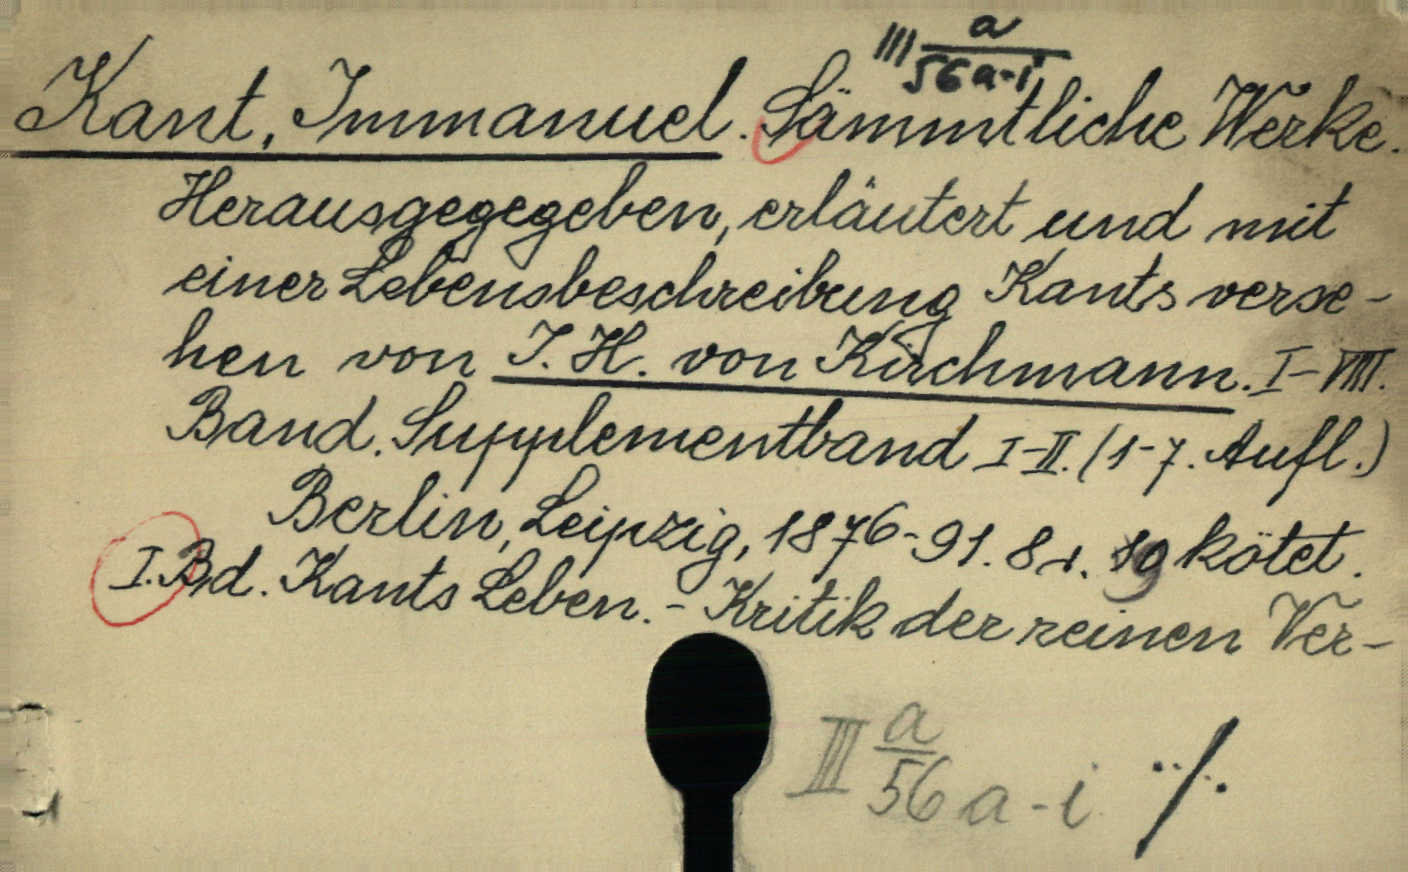 III a/56 a-i
Kant, Immanuel. Sämmtliche Werke.
Herausgegegeben, erläutert und mit
einer Lebensbeschreibung Kants verse-
hen von J. H. von Kirchmann. I-VIII.
Band. Supplementband I-II. (1-7. Aufl.)
Berlin, Leipzig, 1876-91. 8 r. 9 kötet.
I. Bd. Kants Leben. - Kritik der reinen Ver-
III a/56 a-i ./.